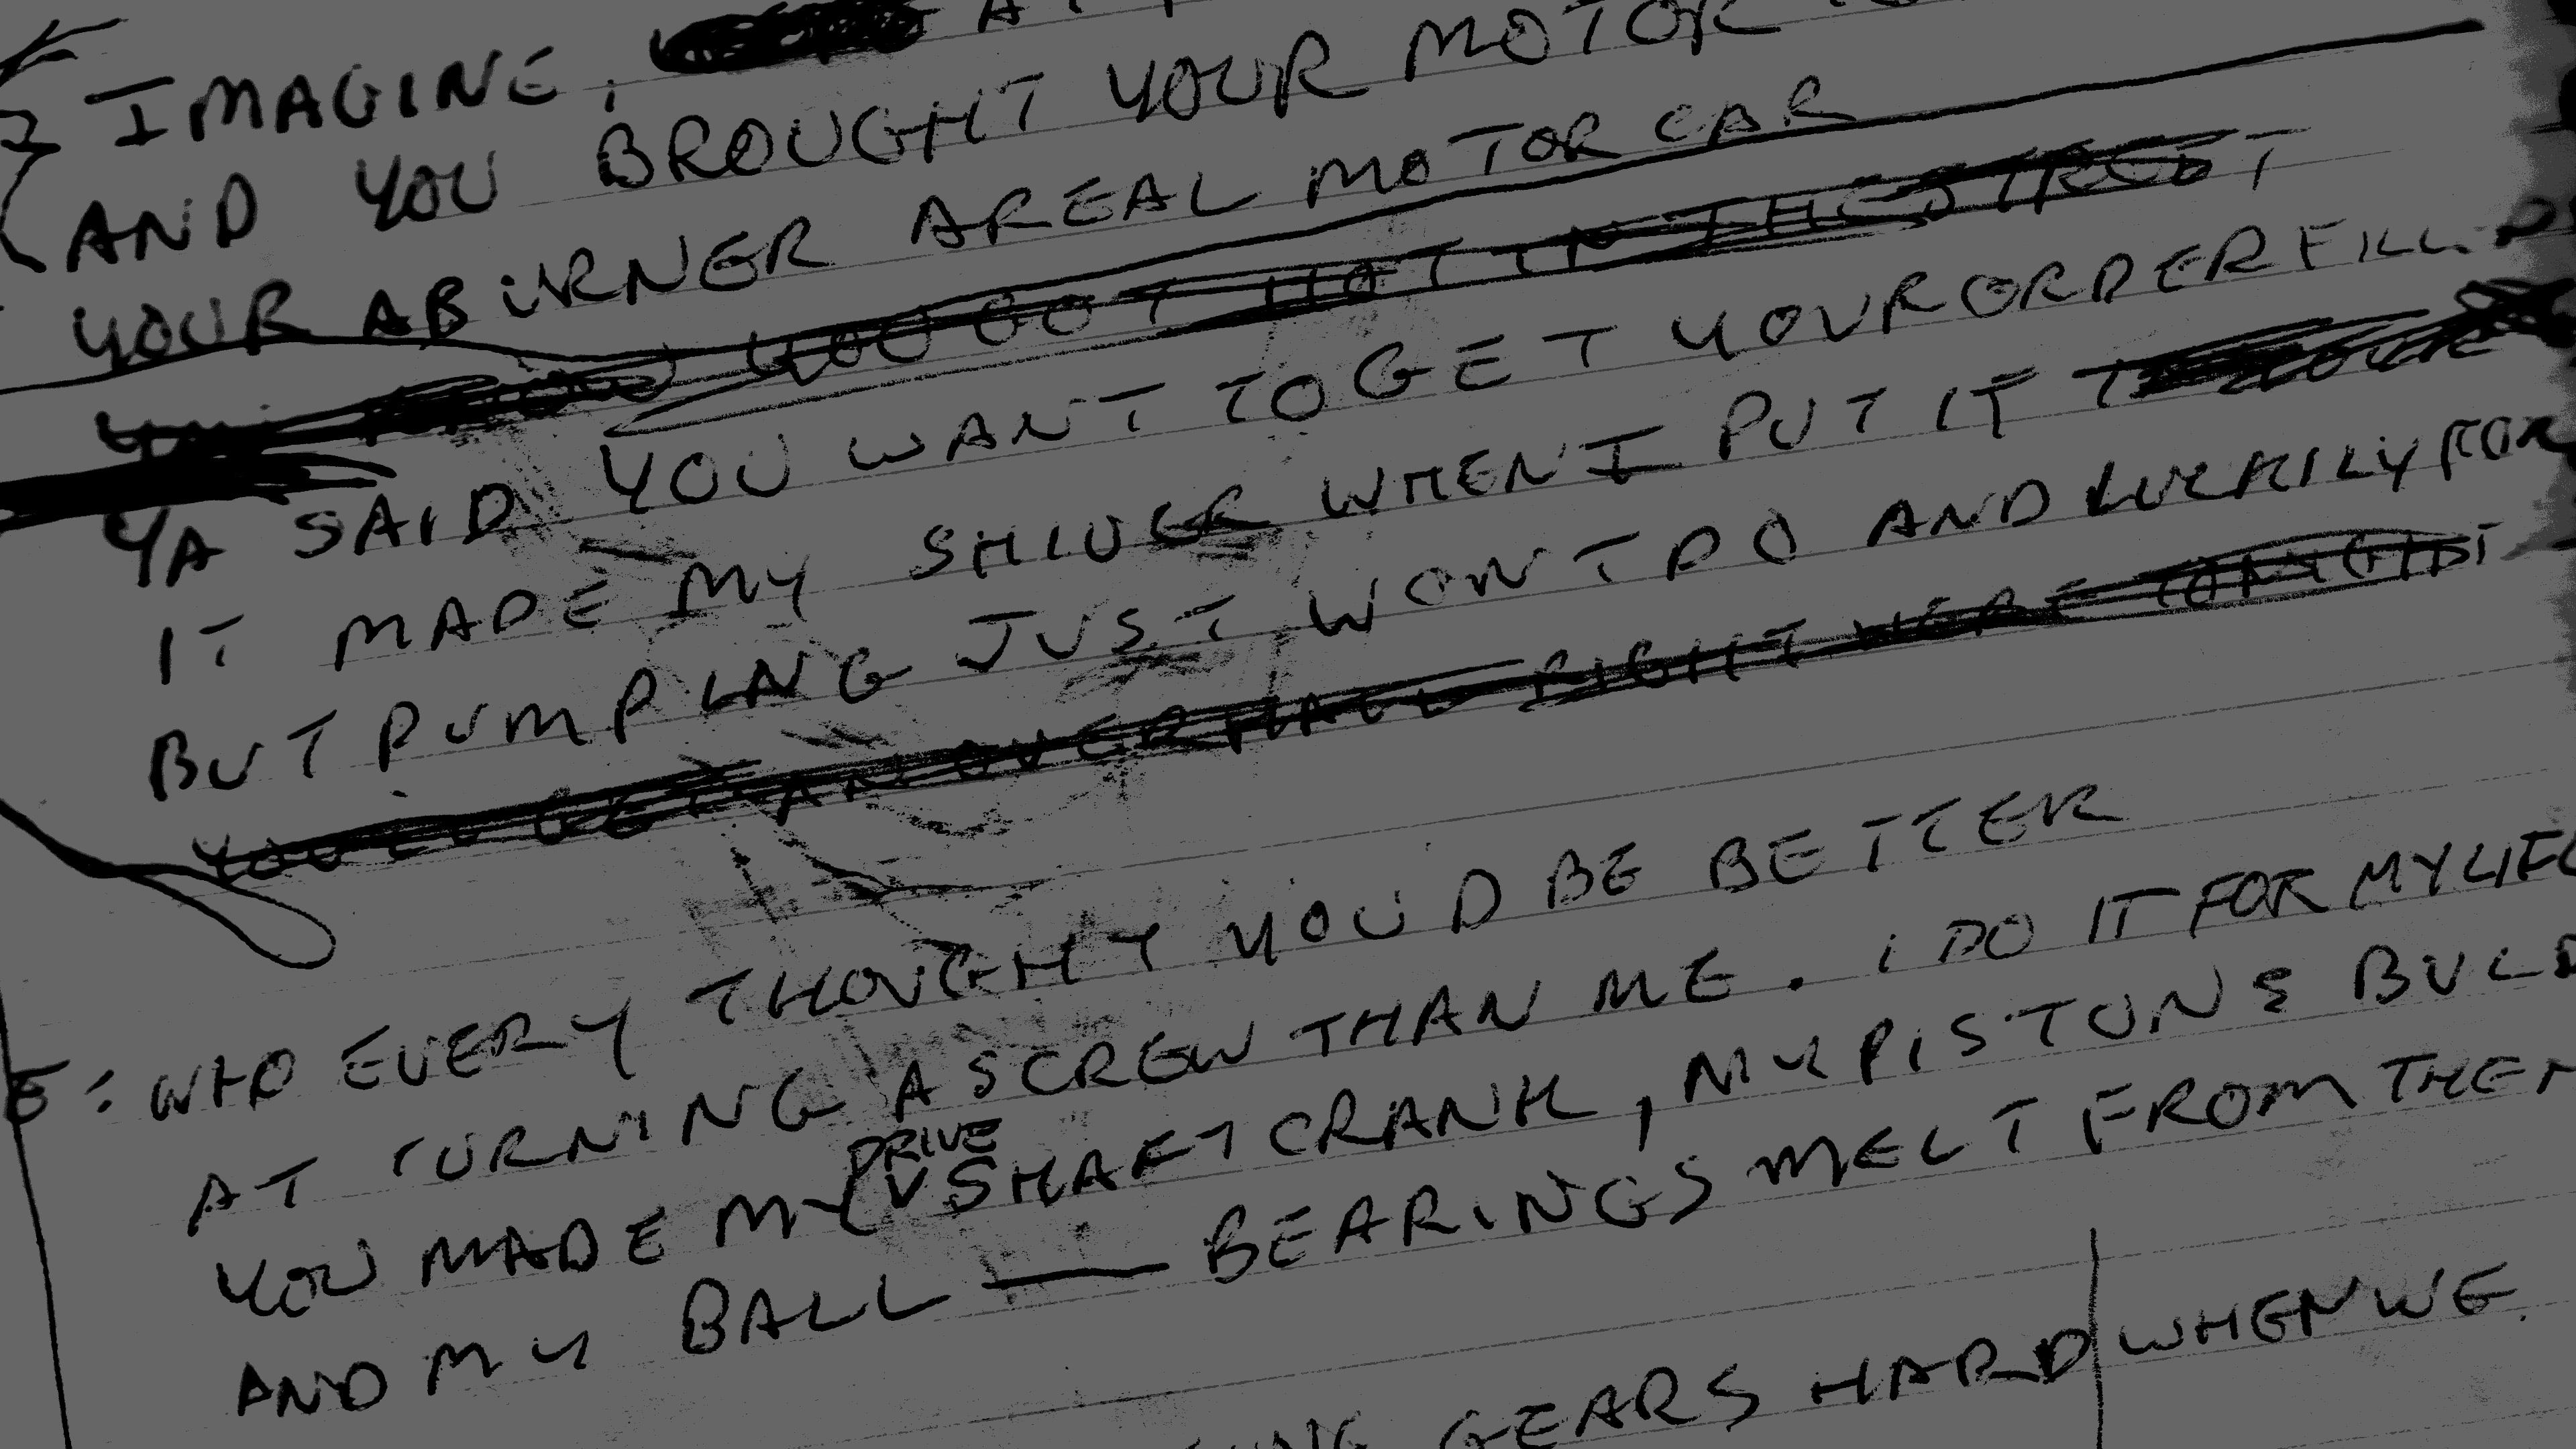 IMAGINE,
AND YOU BROUGHT YOUR MOTOR
YOUR A BURNER A REAL MOTOR CAR
YOU GOT HOT IN THE STREET
YA SAID YOU WANT TO GET YOUR ORDER FILLED
IT MADE MY SHIVER WHEN I PUT IT
BUT PUMPING JUST WONT DO AND LUCKILY FOR
YOU'LL GET AN OVERHAUL RIGHT HERE TONIGHT
E: WHO EVERY THOUGHT YOUD BE BETTER
AT TURNING A SCREW THAN ME. I DO IT FOR MY LIFE
DRIVE
YOU MADE MY SHAFT CRANK, MY PISTONS BULD
AND MY BALL — BEARINGS MELT FROM THE
GEARS HARD WHEN WE